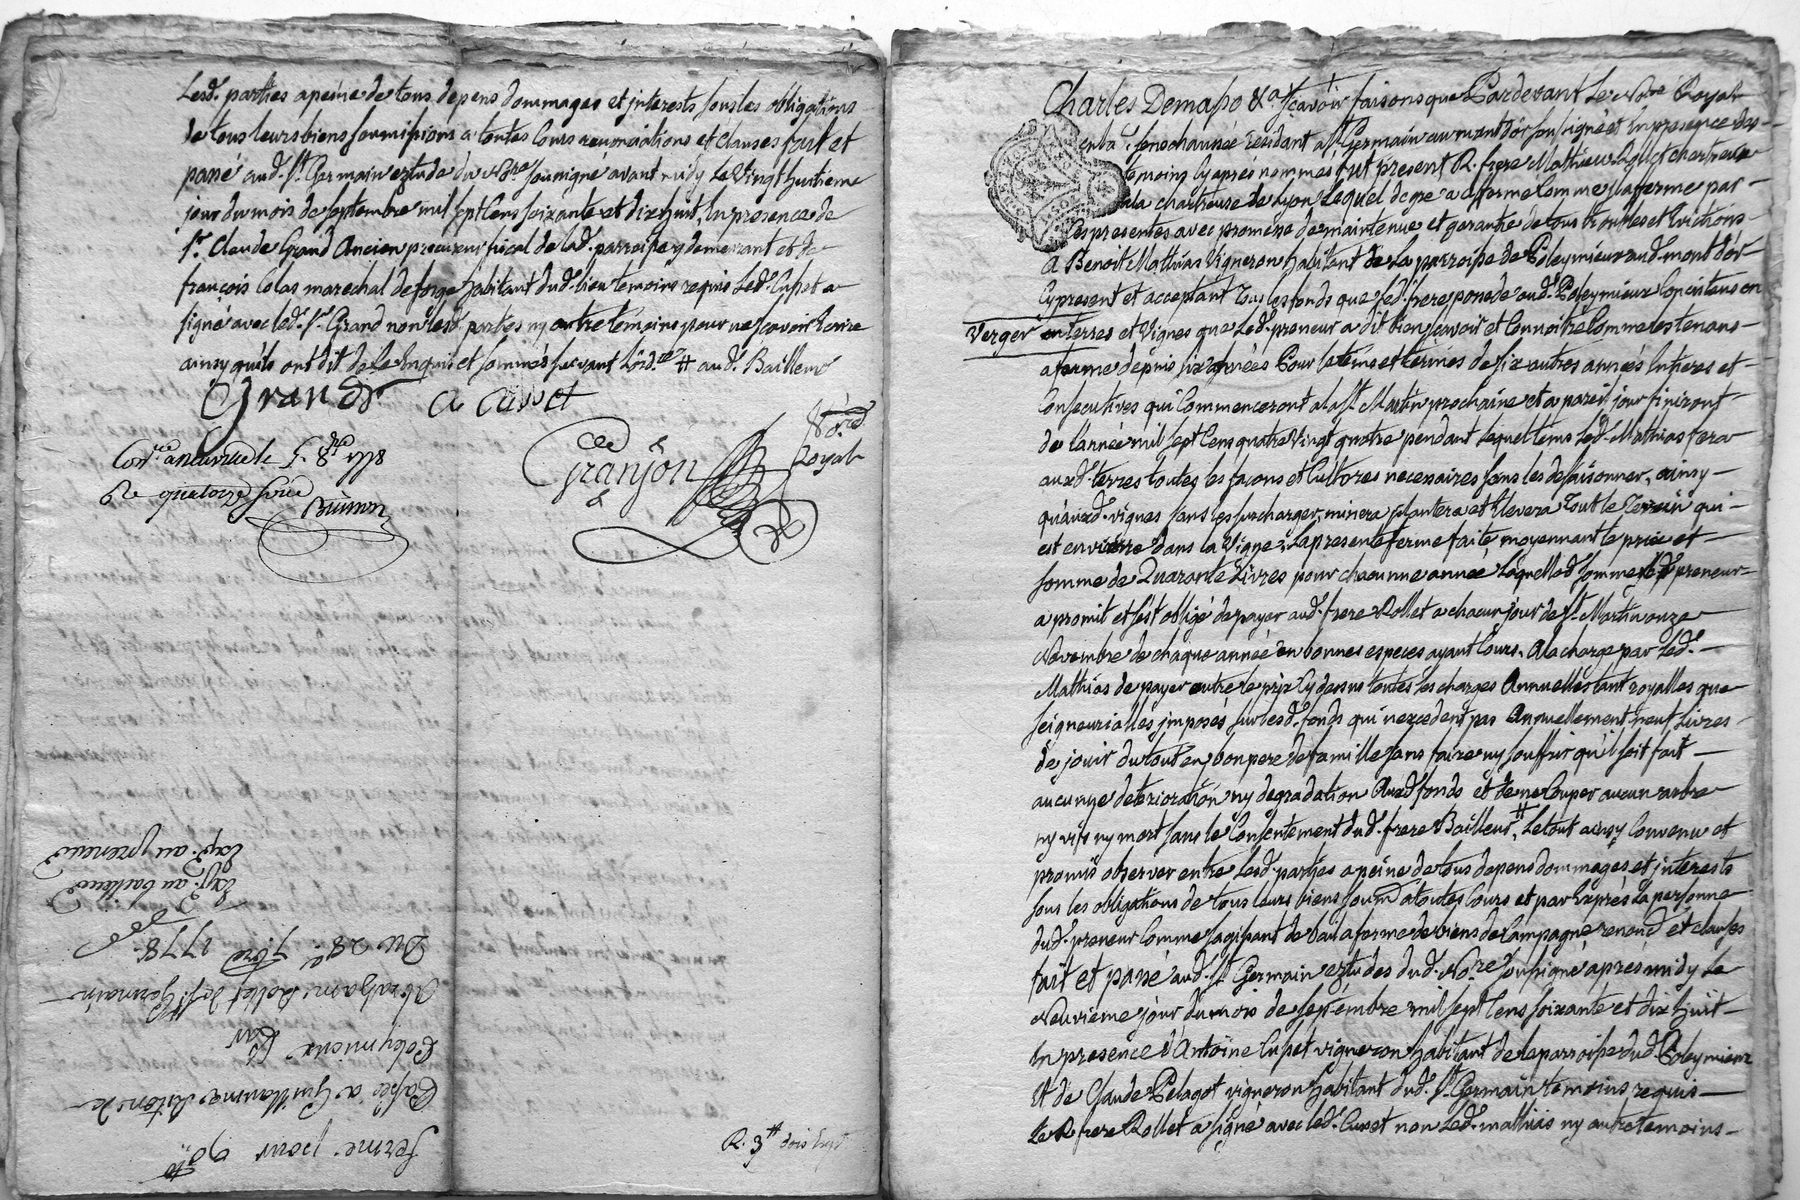 Lesd. parties a peine de tous depens dommages et jnterests sous les obligations
de tous leurs biens soumissions a toutes Cours renonciations et clauses fait et
passé aud. St. Germain eztude du Nore. soussigné avant midy Le Vingt huitieme
jour du mois de septembre mil sept Cens soixante et dix huit, En presence de
Sr. Claude Grand Ancien procureur fiscal de lad. parroisse y demeurant et de
françois Colas marechal de forge habitant dud. lieu temoins requis Led. Cusset a
signé avec led. Sr. Grand non lesd. parties ny autre temoins pour ne sçavoir Ecrire
ainsy qu'ils ont dit de ce Enquis et sommés suivant L'ord.ce # aud. Bailleur
Grand a Cusset
Granjon
Nore.
Royal
Con.lé a 8bre 1778
Re quatorze sous
R. 3#
ferme pour 90#
Passée a Guillaume de
Poleymieux
Par
Abraham Rollet de St. Germain
Du 28e. 7bre 1778.
Exp. au bailleur
Exp. au preneur
Charles Demasso &a sçavoir faisons que Pardevant Le Nore. Royal
en la senechaussée residant a St. Germain au mont d'or soussigné et En presence des
temoins Cy aprés nommés fut present R. frere Mathieu Rollet chartreux
a la chartreuse de Lyon Lequel de gré a affermé Comme il afferme par
Ces presentes avec promesse de maintenue et garantie de tous troubles et Evictions
A Benoit Mathias Vigneron habitant de La parroisse de Poleymieux aud. mont d'or
Cy present et acceptant Tous les fonds que led. frere possede aud. Poleymieux Consistans en
Verger en terres et Vignes que Led. preneur a dit bien sçavoir et Connoitre Comme les tenans
a ferme depuis six années Pour le tems et termes de six autres années Entieres et
Consecutives qui Commenceront a la St. Martin prochaine et a pareil jour finiront
de l'année mil sept Cens quatre Vingt quatre pendant lequel tems Led. Mathias fera
auxd. terres toutes les façons et Cultures necessaires sans les desaisonner, ainsy
qu'auxd. vignes sans les surcharger, minera plantera et Elevera Tout le Terrein qui
est en vierre dans la Vigne, La presente ferme faite moyennant le prix et
somme de Quarante Livres pour chacunne année Laquelle d. somme led. preneur
a promit et s'est obligé de payer aud. frere Rollet a chacun jour de St. Martin onze
Novembre de chaque année en bonnes especes ayant Cours. A la charge par Led.
Mathias de payer outre le prix Cy dessus toutes les charges Annuelles tant royalles que
seigneurialles jmposés sur lesd. fonds qui n'excedent pas Annuellement neuf Livres
de jouir du tout en bon pere de famille sans faire ny souffrir qu'il soit fait
aucunne deterioration ny degradation Auxd. fonds et de ne Couper aucun arbre
ny vifs ny mort sans le Consentement dud. frere Bailleur,# Le tout ainsy Convenu et
promis observer entre Lesd. parties a peine de tous depens dommages et jnterests
sous les obligations de tous leurs biens soum. a toutes Cours et par Exprés La personne
dud. preneur Comme s'agissant de bail a ferme de biens de Campagne renonc. et clauses
fait et passé aud. St. Germain eztudes dud. Nore. soussigné aprés midy Le
Neuvieme jour du mois de septembre mil sept Cens soixante et dix huit
En presence d'Antoine Cusset vigneron habitant de la parroisse dud. Poleymieux
Et de Claude Pelagot vigneron habitant dud. St. Germain temoins requis
Le R. frere Rollet a signé avec led. Cusset non Led. mathias ny autre temoins